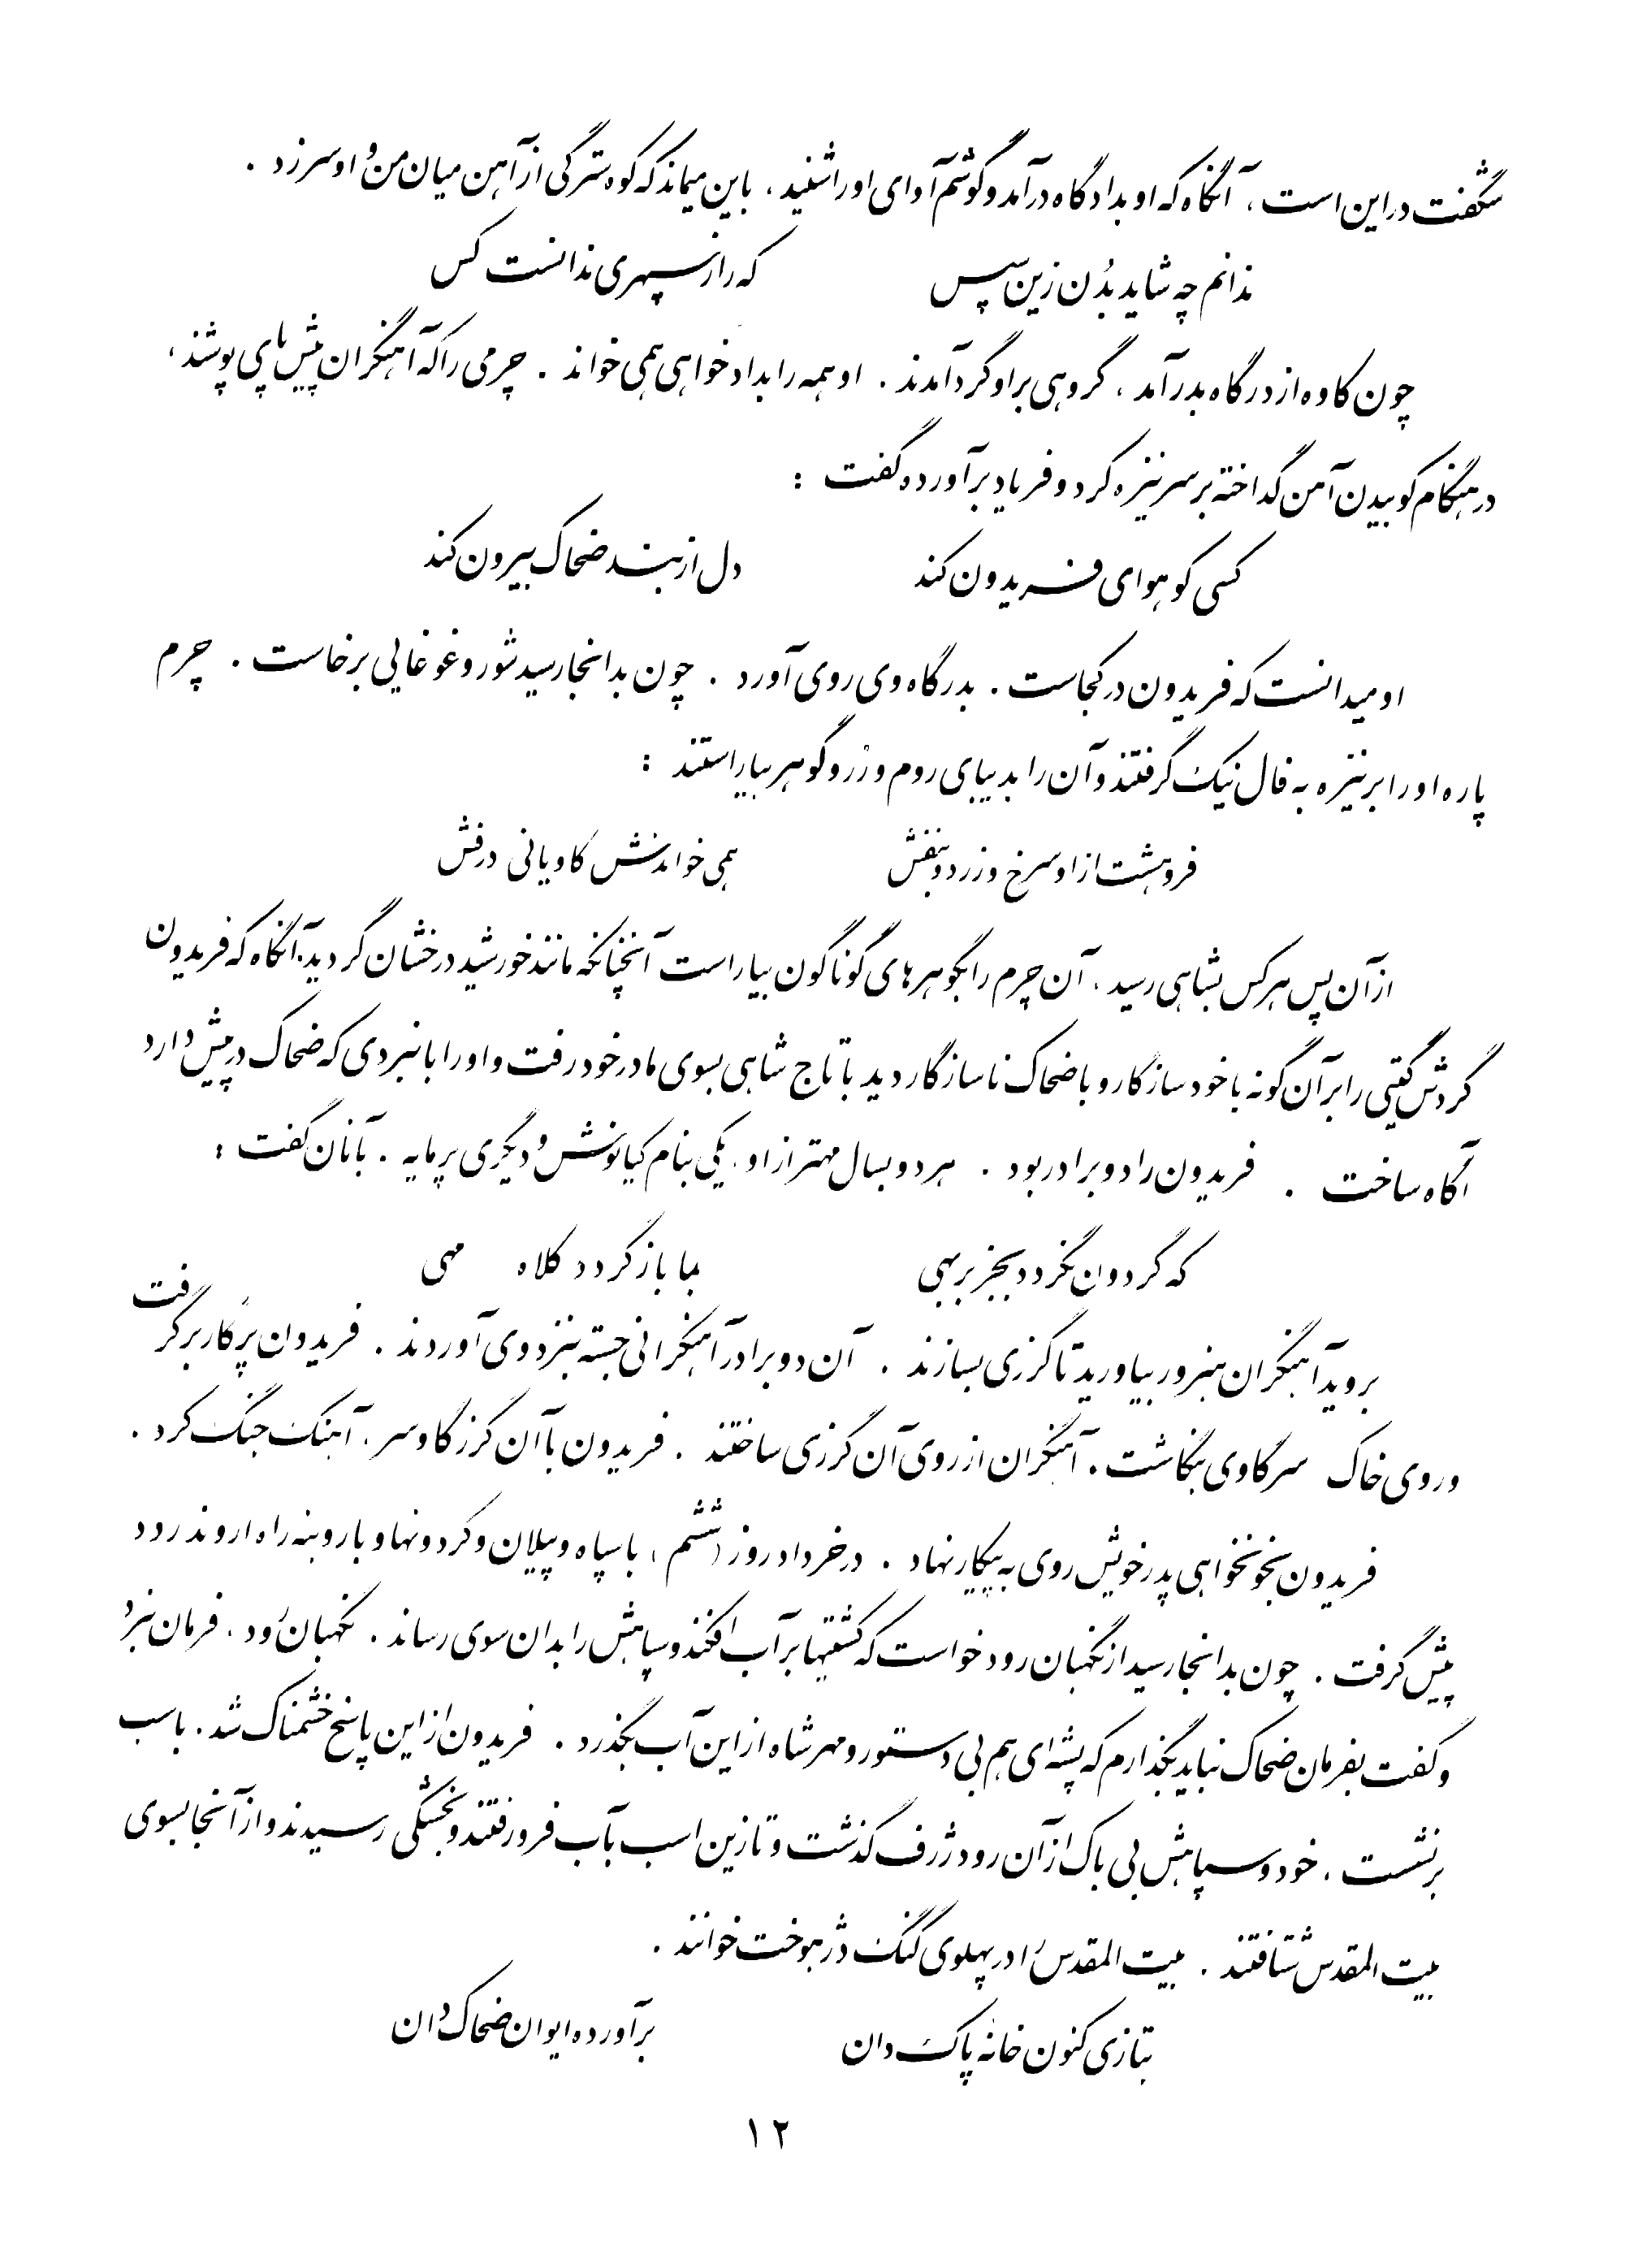 شگفت در این است، آنگاه که او بدادگاه درآمد و گوشم آوای او را شنید، باین میماند که کوه سترگی از آهن میان من و او سر زد .
ندانم چه شاید بُدن زین سپس که راز سپهری ندانست کس
چون کاوه از درگاه بدر آمد ، گروهی بر او گرد آمدند . او همه را بدادخواهی همی خواند . چرمی را که آهنگران پیش پای پوشند ،
در هنگام کوبیدن آهن گداخته بر سر نیزه کرد و فریاد برآورده گفت :
کسی کو هوای فریدون کند دل از بند ضحاک بیرون کند
او میدانست که فریدون در کجاست . بدرگاه وی روی آورد . چون بدانجا رسید شور و غوغایی برخاست . چرم
پاره او را بر نیزه به فال نیک گرفتند و آن را بدیبای روم و زر و گوهر بیاراستند :
فروهشت از او سرخ و زرد و بنفش همی خواندش کاویانی درفش
از آن پس هر کس بشاهی رسید ، آن چرم را بگوهرهای گوناگون بیاراست آنچنانکه مانند خورشید درخشان گردید. آنگاه که فریدون
گردش گیتی را بر آن گونه با خود سازگار و با ضحاک ناسازگار دید با تاج شاهی بسوی مادر خود رفت و او را با نبردی که ضحاک در پیش دارد
آگاه ساخت . فریدون را دو برادر بود . هر دو بسال مهتر از او ، یکی بنام کیانوش و دیگری پرمایه . بآنان گفت :
که گردون نگردد بجز بر بهی بما باز گردد کلاه مهی
بروید آهنگران هنرور بیاورید تا گرزی بسازند . آن دو برادر آهنگرانی جسته بنزد وی آوردند . فریدون پرگار برگرفت
و روی خاک سر گاوی بنگاشت . آهنگران از روی آن گرزی ساختند . فریدون با آن گرز گاوسر ، آهنگ جنگ کرد .
فریدون بخونخواهی پدر خویش روی به پیکار نهاد . در خرداد روز (ششم) با سپاه و پیلان و گردونها و بار و بنه راه اروند رود
پیش گرفت . چون بدانجا رسید از نگهبان رود خواست که کشتیها بر آب افکند و سپاهش را بدان سوی رساند . نگهبان رود ، فرمان نبرد
و گفت بفرمان ضحاک نباید بگذارم که پشه ای هم بی دستور و مهر شاه از این آب بگذرد . فریدون از این پاسخ خشمناک شد . باسب
برنشست ، خود و سپاهش بی باک از آن رود ژرف گذشت و تا زین اسب بآب فرو رفتند و بخشکی رسیدند و از آنجا بسوی
بیت المقدس شتافتند . بیت المقدس را در پهلوی گنگ دژ هوخت خوانند .
بتازی کنون خانهٔ پاک دان برآورده ایوان ضحاک دان
۱۲